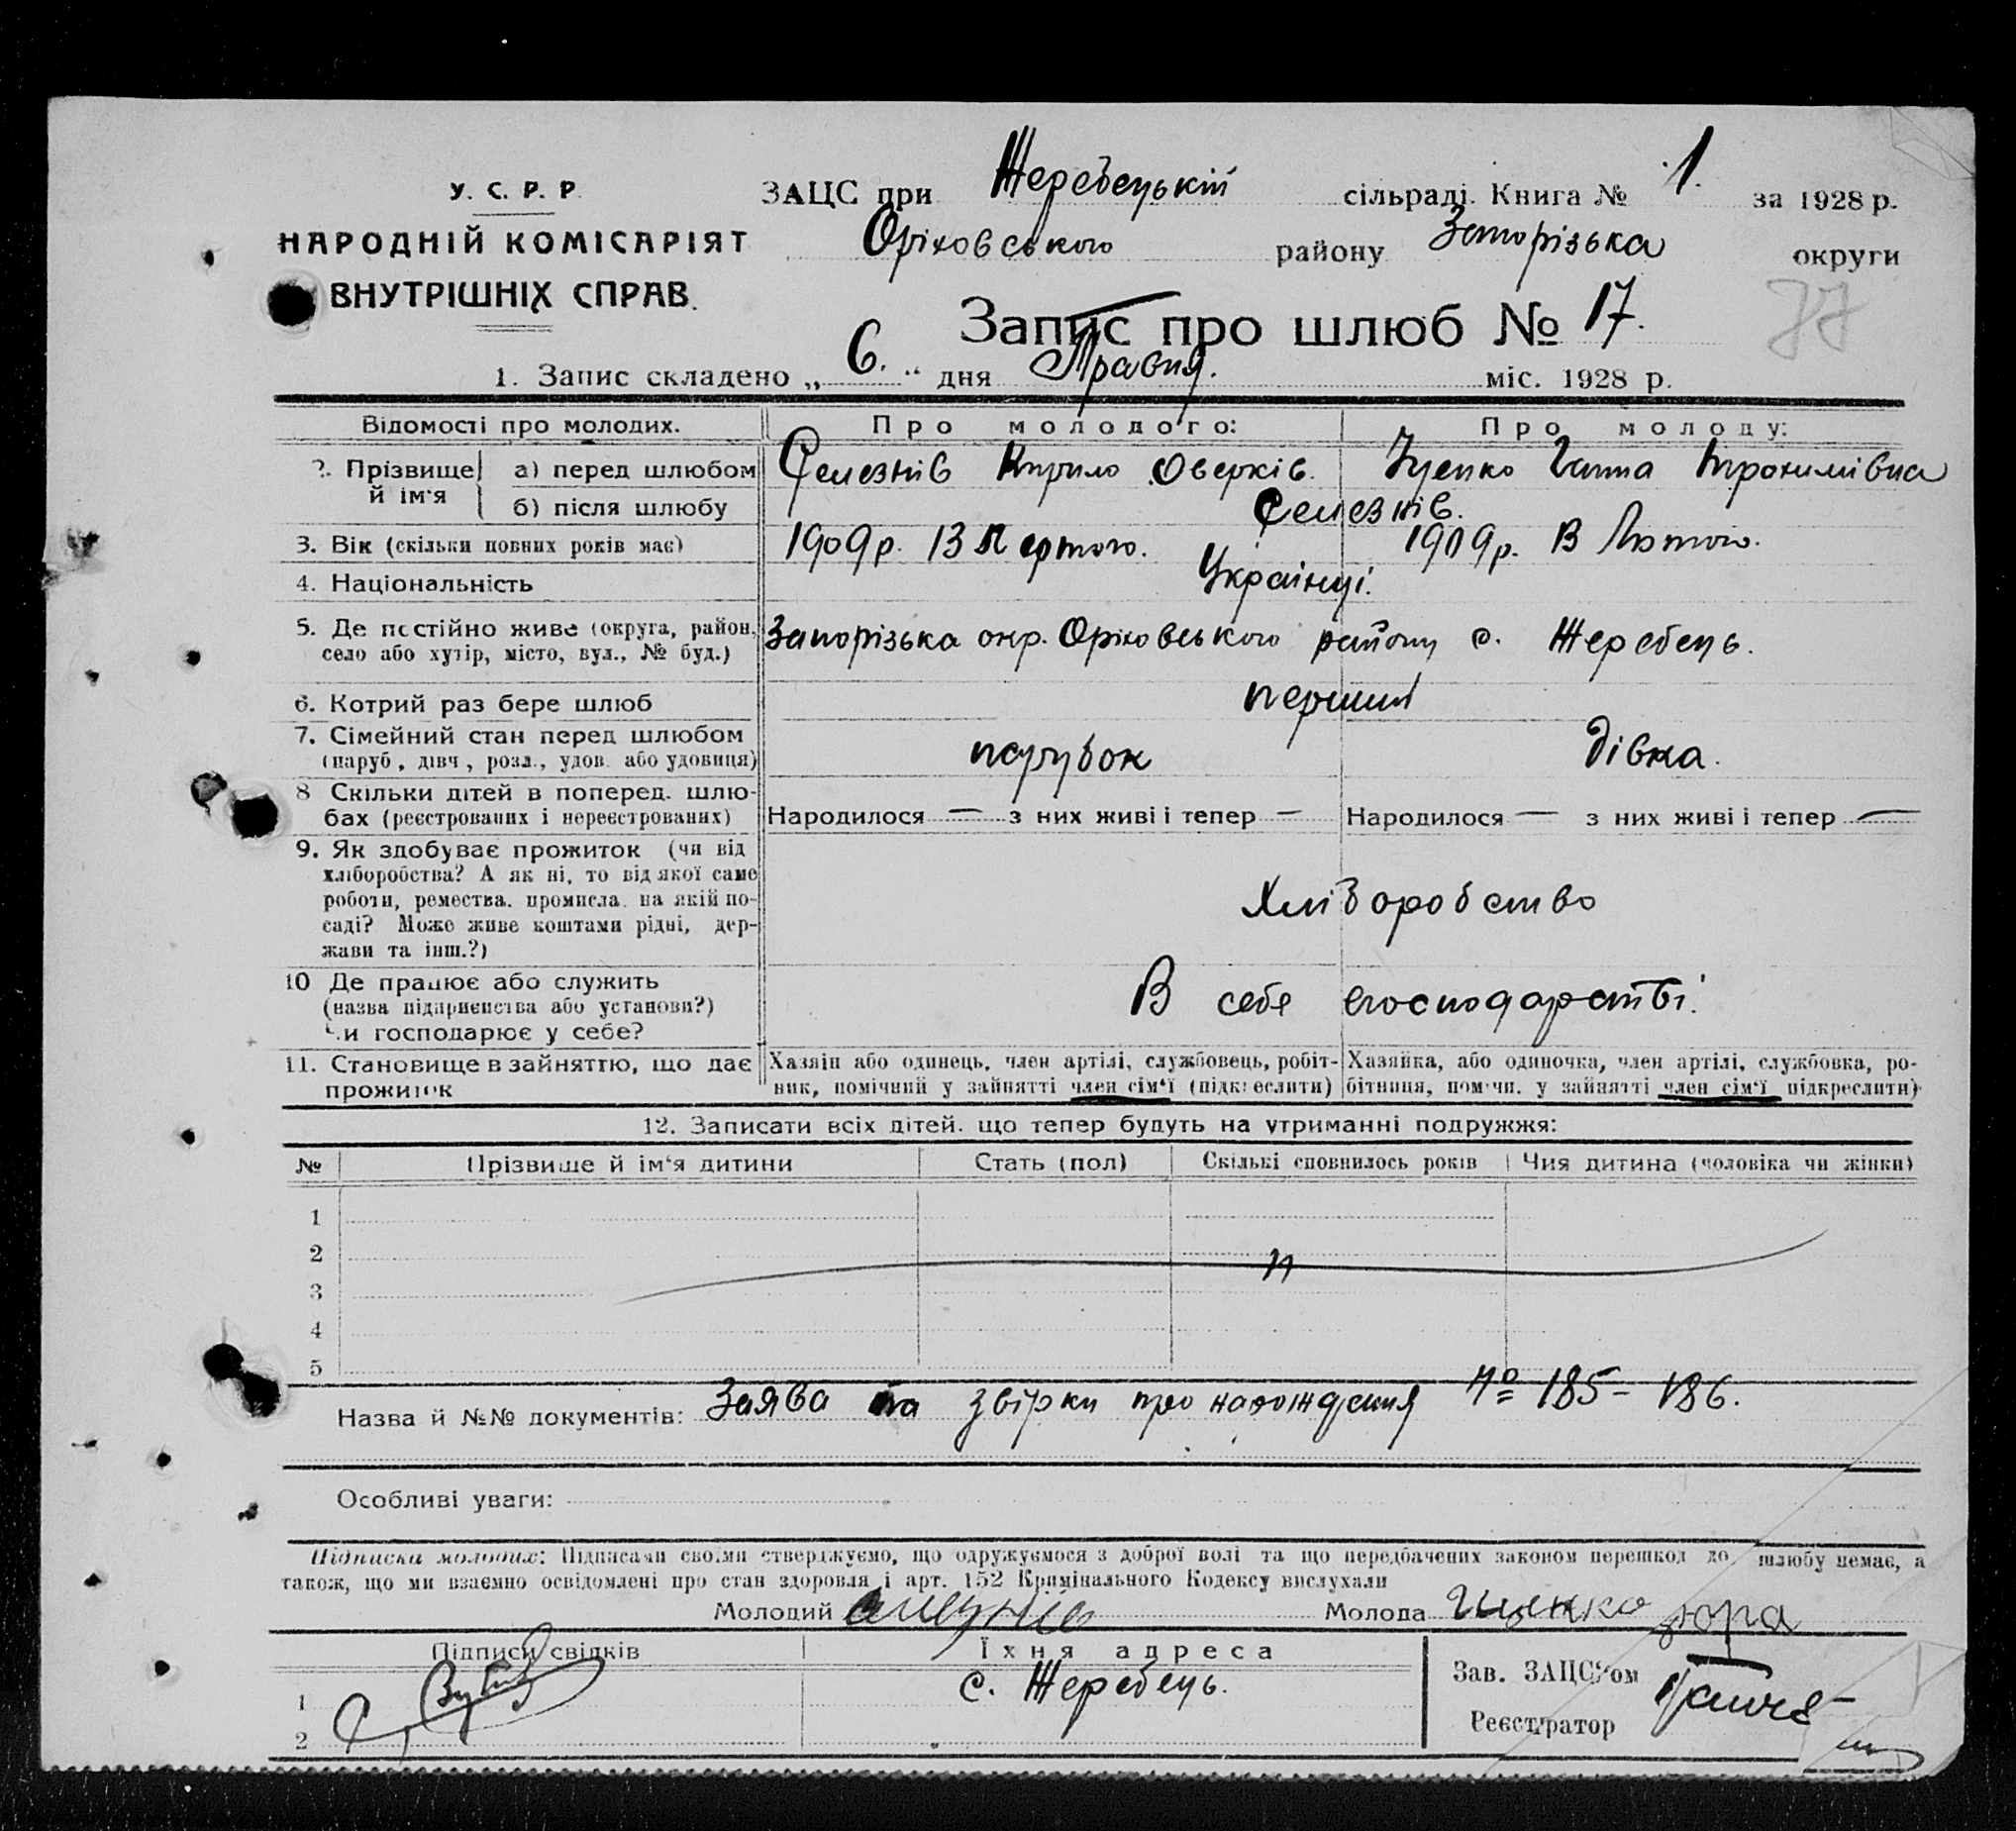 У. С. Р. Р.
НАРОДНІЙ КОМІСАРІЯТ
ВНУТРІШНІХ СПРАВ.
ЗАЦС при Жеребецькій сільраді. Книга № 1. за 1928 р.
Оріховського району Запорізька округи
Запис про шлюб № 17.
77
1. Запис складено „ 6. “ дня Травня. міс. 1928 р.
Відомості про молодих. Про молодого: Про молоду:
2. Прізвище й ім‘я
а) перед шлюбом Селезнів Кирило Оверків. Ганна Трохимівна
б) після шлюбу Селезнів.
3. Вік (скільки повних років має) 1909 р. 13 1909 р. Лютого.
4. Національність Українці.
5. Де постійно живе (округа, район, Запорізька окр. Оріховського району с. Жеребець.
село або хутір, місто, вул., № буд.)
6. Котрий раз бере шлюб перший
7. Сімейний стан перед шлюбом парубок дівка.
(паруб., дівч., розл., удов. або удовиця)
8 Скільки дітей в поперед. шлю-
бах (реєстрованих і нереєстрованих) Народилося — з них живі і тепер — Народилося — з них живі і тепер —
9. Як здобуває прожиток (чи від
хліборобства? А як ні, то від якої саме
роботи, ремества, промисла, на якій по- Хліборобство
саді? Може живе коштами рідні, дер-
жави та інш.?)
10 Де працює або служить В себе господарстві.
(назва підприємства або установи?)
Чи господарює у себе?
11. Становище в зайняттю, що дає прожиток
Хазяін або одинець, член артілі, службовець, робіт-
ник, помічний у зайнятті член сім‘ї (підкреслити)
Хазяйка, або одиночка, член артілі, службовка, ро-
бітниця, помічн. у зайнятті член сім‘ї підкреслити)
12. Записати всіх дітей, що тепер будуть на утриманні подружжя:
№ Прізвище й ім‘я дитини Стать (пол) Скількі сповнилось років Чия дитина (чоловіка чи жінки)
1
2
3
4
5
Назва й №№ документів: Заява та звірки про народження № 185 – 186.
Особливі уваги:
Підписка молодих: Підписами своїми стверджуємо, що одружуємося з доброї волі та що передбачених законом перешкод до шлюбу немає, а
також, що ми взаємно освідомлені про стан здоровля і арт. 152 Кримінального Кодексу вислухали
Молодий Молода
Підписи свідків Їхня адреса
1 с. Жеребець.
2
Зав. ЗАЦС‘ом
Реєстратор